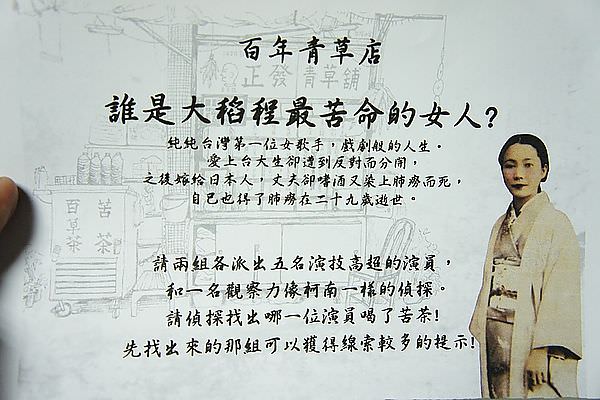 百年青草店
正發青草舖
誰是大稻程最苦命的女人?
純純台灣第一位女歌手，戲劇般的人生。
愛上台大生卻遭到反對而分開，
之後嫁給日本人，丈夫卻嗜酒又染上肺癆而死，
自己也得了肺癆在二十九歲逝世。
苦茶
百草茶
請兩組各派出五名演技高超的演員，
和一名觀察力像柯南一樣的偵探。
請偵探找出哪一位演員喝了苦茶!
先找出來的那組可以獲得線索較多的提示!